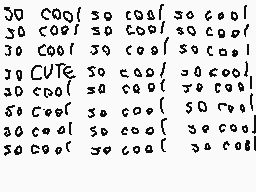 so cool so cool so cool
so cool so cool so cool
so cool so cool so cool
so CUTE so cool so cool
so cool so cool so cool
so cool so cool so cool
so cool so cool so cool
so cool so cool so cool